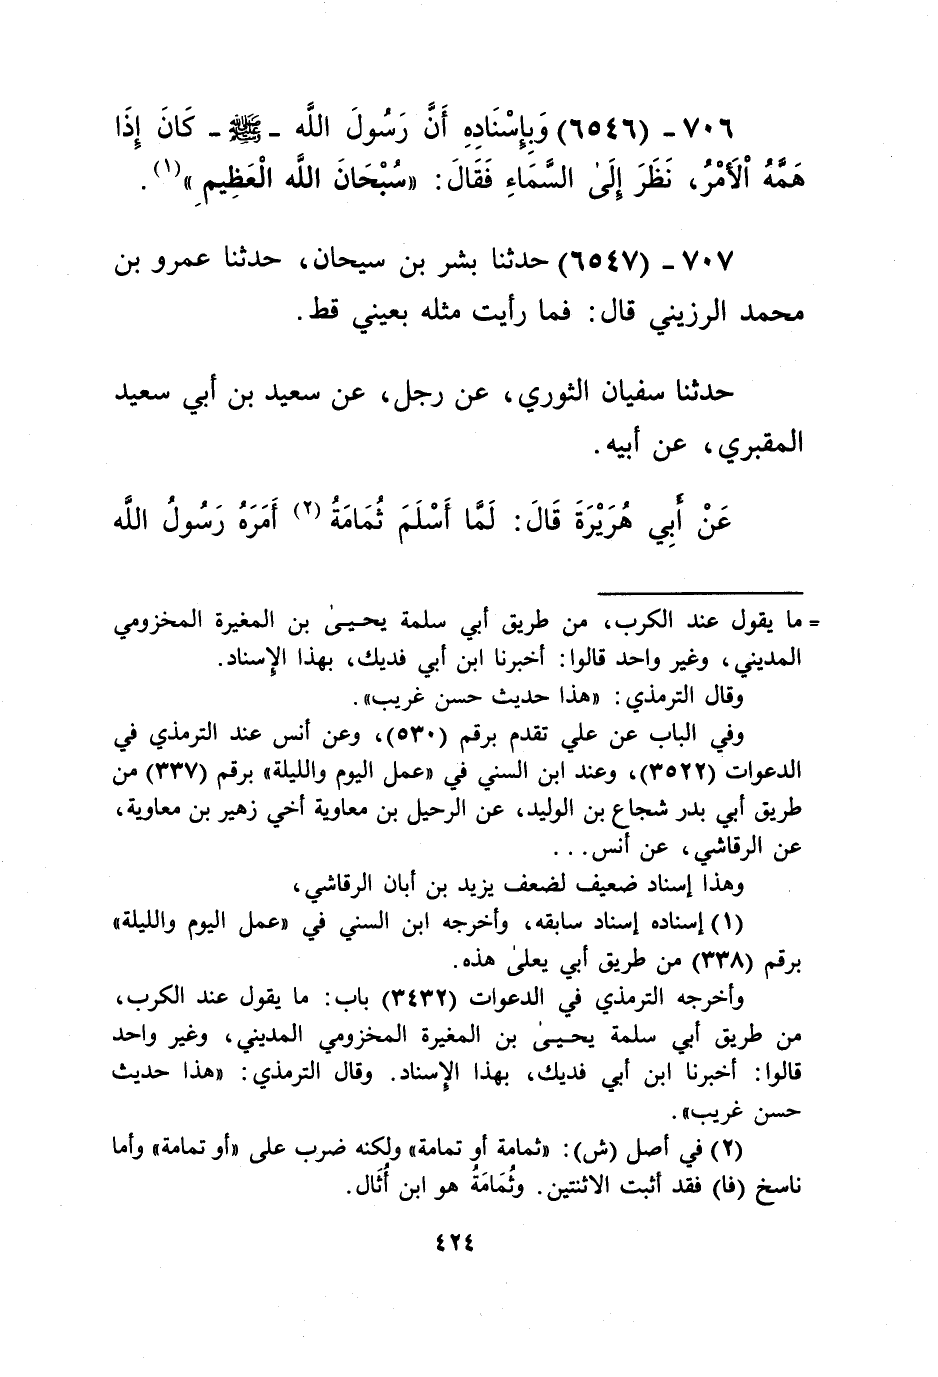 ٧٠٦ - (٦٥٤٦) وَبِإِسْنَادِهِ أَنَّ رَسُولَ اللَّه - ﷺ - كَانَ إِذَا
هَمَّهُ الْأَمْرُ، نَظَرَ إِلَىٰ السَّمَاءِ فَقَالَ: «سُبْحَانَ اللَّه الْعَظِيمِ»(١).
٧٠٧ - (٦٥٤٧) حدثنا بشر بن سيحان، حدثنا عمرو بن
محمد الرزيني قال: فما رأيت مثله بعيني قط.
حدثنا سفيان الثوري، عن رجل، عن سعيد بن أبي سعيد
المقبري، عن أبيه.
عَنْ أَبِي هُرَيْرَةَ قَالَ: لَمَّا أَسْلَمَ ثُمَامَةُ (٢) أَمَرَهُ رَسُولُ اللَّه
= ما يقول عند الكرب، من طريق أبي سلمة يحيىٰ بن المغيرة المخزومي
المديني، وغير واحد قالوا: أخبرنا ابن أبي فديك، بهذا الإسناد.
وقال الترمذي: «هذا حديث حسن غريب».
وفي الباب عن علي تقدم برقم (٥٣٠)، وعن أنس عند الترمذي في
الدعوات (٣٥٢٢)، وعند ابن السني في «عمل اليوم والليلة» برقم (٣٣٧) من
طريق أبي بدر شجاع بن الوليد، عن الرحيل بن معاوية أخي زهير بن معاوية،
عن الرقاشي، عن أنس...
وهذا إسناد ضعيف لضعف يزيد بن أبان الرقاشي،
(١) إسناده إسناد سابقه، وأخرجه ابن السني في «عمل اليوم والليلة»
برقم (٣٣٨) من طريق أبي يعلىٰ هذه.
وأخرجه الترمذي في الدعوات (٣٤٣٢) باب: ما يقول عند الكرب،
من طريق أبي سلمة يحيىٰ بن المغيرة المخزومي المديني، وغير واحد
قالوا: أخبرنا ابن أبي فديك، بهذا الإسناد. وقال الترمذي: «هذا حديث
حسن غريب».
(٢) في أصل (ش): «ثمامة أو تمامة» ولكنه ضرب على «أو تمامة» وأما
ناسخ (فا) فقد أثبت الاثنتين. وثُمَامَةُ هو ابن أُثَال.
٤٢٤